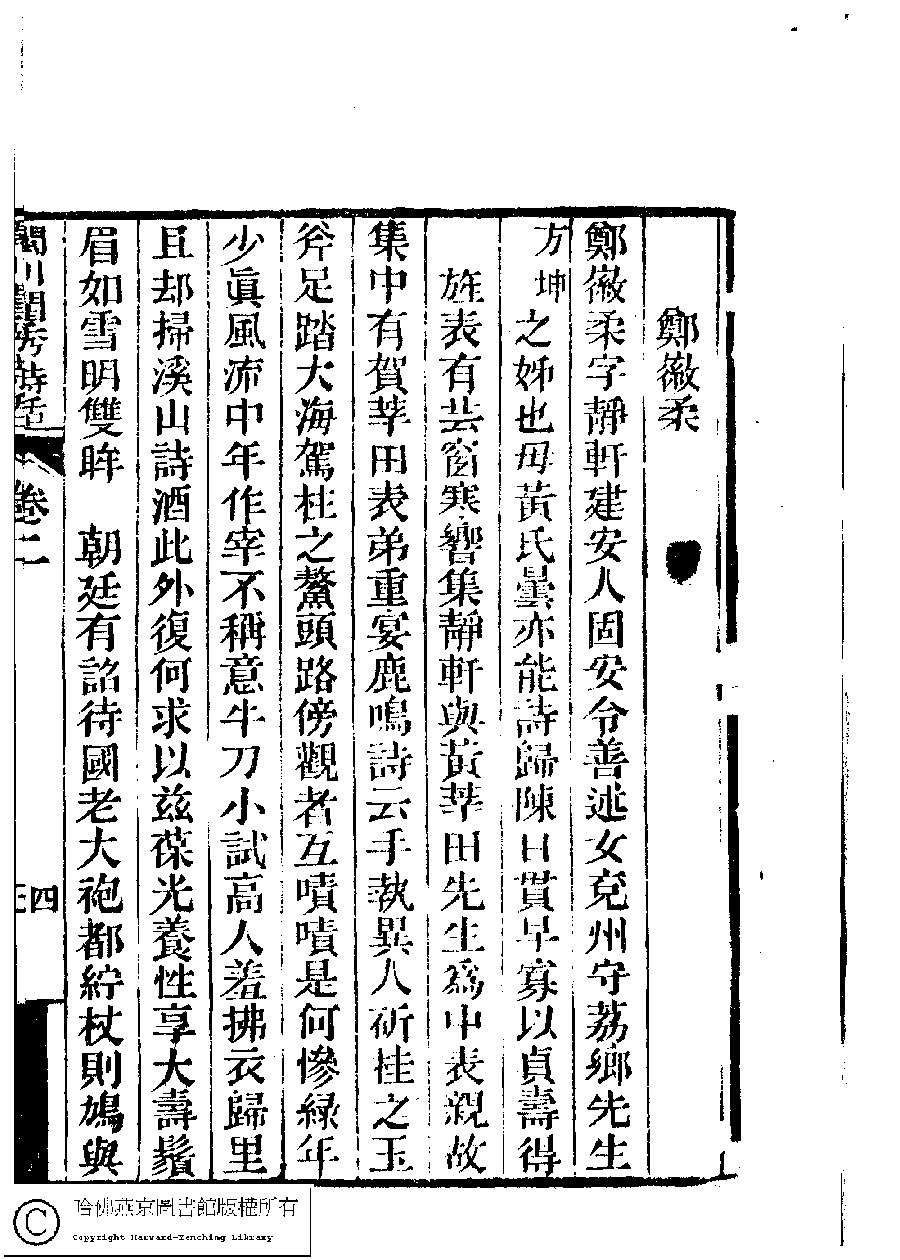 鄭徽柔
鄭徽柔字靜軒建安人固安令善述女兗州守荔鄉先生
方坤之姊也母黃氏曇亦能詩歸陳日貫早寡以貞壽得
旌表有芸窗寒響集靜軒與黃莘田先生爲中表親故
集中有賀莘田表弟重宴鹿鳴詩云手執異人斫桂之玉
斧足踏大海駕柱之鰲頭路傍觀者互嘖嘖是何慘綠年
少眞風流中年作宰不稱意牛刀小試高人羞拂衣歸里
且却掃溪山詩酒此外復何求以茲葆光養性享大壽鬚
眉如雪明雙眸　朝廷有詔待國老大袍都紵杖則鳩與
閩川閨秀詩話　卷二　四
哈佛燕京圖書館版權所有
Copyright Harvard-Yenching Library